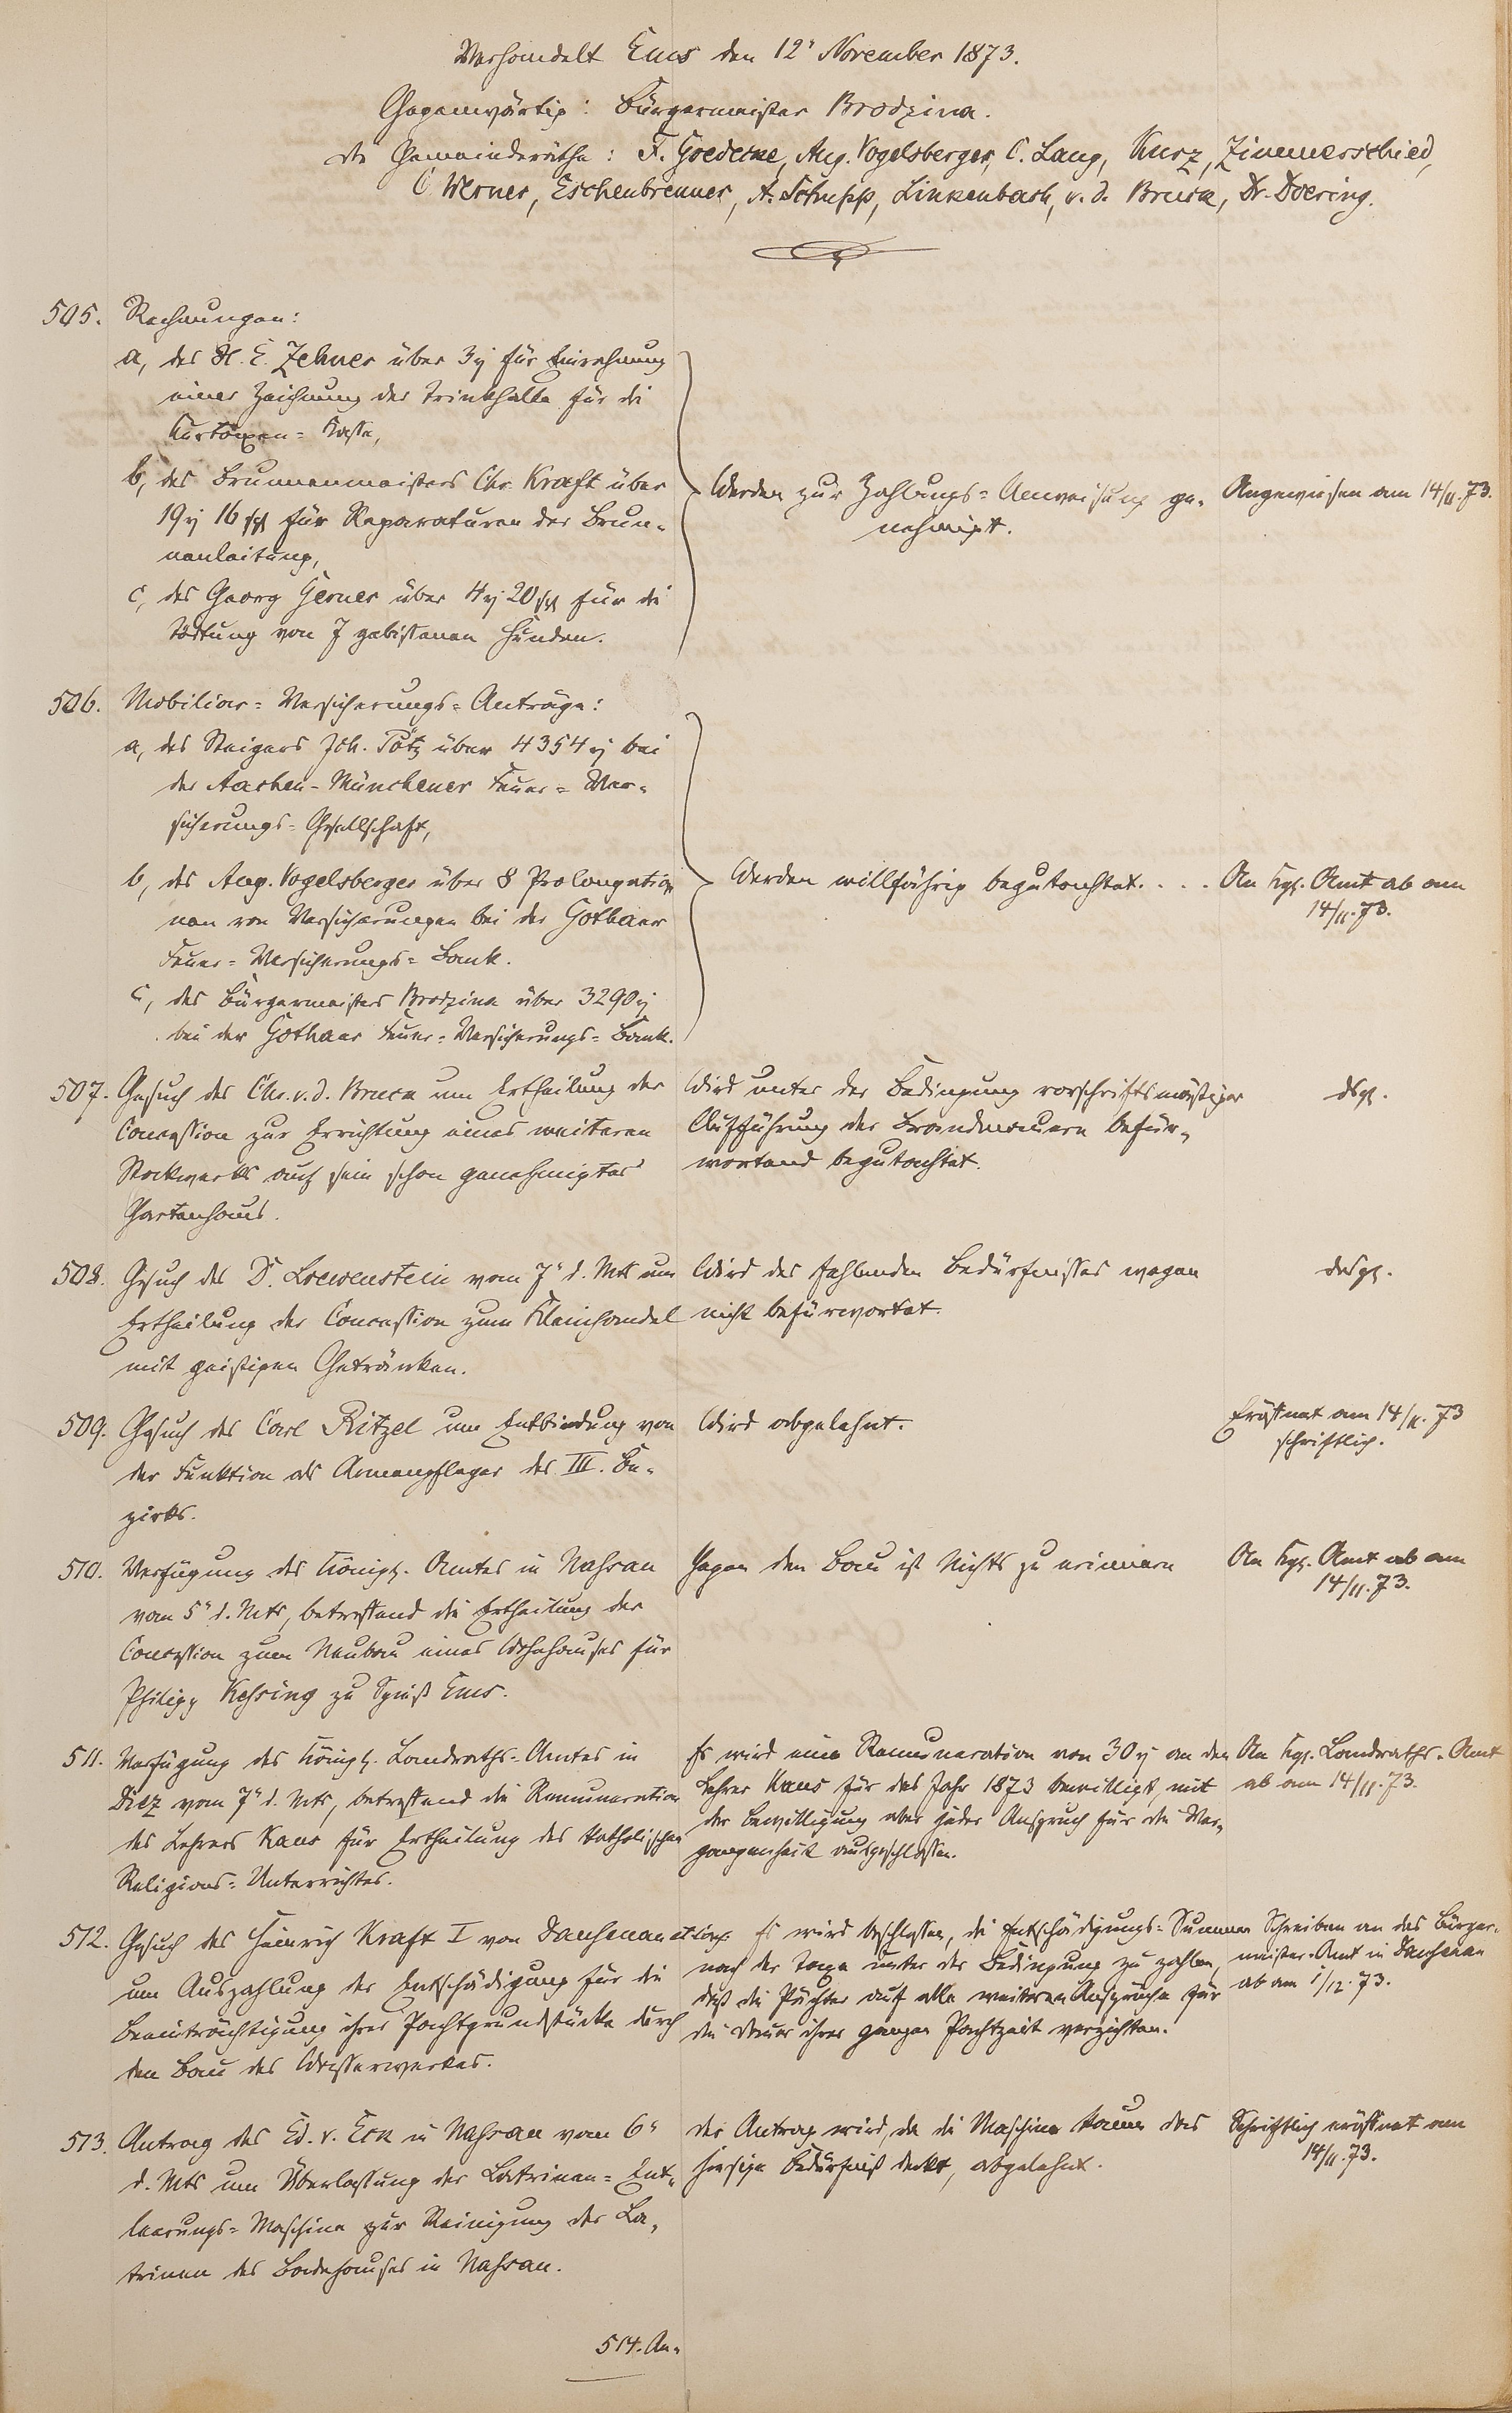 Verhandelt Ems den 12" November 1873.
Gegenwärtig: Bürgermeister Brodzina.
die Gemeinderäthe: F. Goedecke, Aug. Vogelsberger, C. Lang, Kurz, Zimmerschied,
C. Werner, Eschenbrenner, A. Schupp, Linkenbach, v. d. Bruck, Dr. Doering.
505. Rechnungen:
a, des H. E. Zehner über 3 für Einrahmung
einer Zeichnung der Trinkhalle für die
Curtaxen=Kasse,
b, des Brunnenmeisters Chr. Kraft über
19 16 für Reparaturen der Brun„
nenleitung,
c, des Georg Gerner über 4 20 für die
Tödtung von 7 gebissenen Hunden.
Werden zur Zahlungs=Anweisung ge„
nehmigt.
Angewiesen am 14/11. 73.
506. Mobiliar=Versicherungs=Anträge:
a, des Steigers Joh. Pötz über 4354 bei
der Aachen-Münchener Feuer=Ver„
sicherungs=Gesellschaft,
b, des Aug. Vogelsberger über 8 Prolongatio
nen von Versicherungen bei der Gothaer
Feuer=Versicherungs=Bank.
c, des Bürgermeisters Brodzina über 3290
bei der Gothaer Feuer=Versicherungs=Bank.
Werden willfährig begutachtet. . . .
An Kgl. Amt ab am
14/11. 73.
507. Gesuch des Chr. v. d. Bruck um Ertheilung der
Concession zur Errichtung eines weiteren
Stockwerks auf sein schon genehmigtes
Gartenhaus.
Wird unter der Bedingung vorschriftsmäßiger
Aufführung der Brandmauern befür„
wortend begutachtet.
dsgl.
508. Gesuch des D. Loewenstein vom 7" d. Mts um
Ertheilung der Concession zum Kleinhandel
mit geistigen Getränken.
Wird des fehlenden Bedürfnisses wegen
nicht befürwortet.
desgl.
509. Gesuch des Carl Ritzel um Entbindung von
der Funktion als Armenpfleger des III. Be„
zirks.
Wird abgelehnt.
Eröffnet am 14/11. 73
schriftlich.
510. Verfügung des Königl. Amtes in Nassau
vom 5" d. Mts, betreffend die Ertheilung der
Concession zum Neubau eines Wohnhauses für
Philipp Kehsing zu Ems.
Gegen den Bau ist Nichts zu erinnern
An Kgl. Amt ab am
14/11. 73.
511. Verfügung des Königl. Landraths-Amtes in
Diez vom 7" d. Mts, betreffend die Remuneration
des Lehrers Kaus für Ertheilung des katholischen
Religions=Unterrichtes.
Es wird eine Remuneration von 30 an den
Lehrer Kaus für das Jahr 1873 bewilligt, mit
der Bewilligung aber jeder Anspruch für die Ver„
gangenheit ausgeschlossen.
An Kgl. Landraths-Amt
ab am 14/11. 73.
512. Gesuch des Heinrich Kraft I von Dausenau
um Auszahlung der Entschädigung für die
Beeinträchtigung ihrer Pachtgrundstücke durch
den Bau des Wasserwerkes.
Es wird beschlossen, die Entschädigungs=Summen
nach der Taxe unter der Bedingung zu zahlen,
daß die Pächter auf alle weiteren Ansprüche für
die Dauer ihrer ganzen Pachtzeit verzichten.
Schreiben an das Bürger„
meister-Amt in Dausenau
ab am 1/12. 73.
513. Antrag des Ed. v. Eck in Nassau vom 6"
d. Mts um Überlassung der Latrinen=Ent„
leerungs=Maschine zur Reinigung der La„
trinen des Badehauses in Nassau.
Der Antrag wird, da die Maschine kaum das
hiesige Bedürfniß deckt, abgelehnt.
Schriftlich eröffnet am
14/11. 73.
514. An„